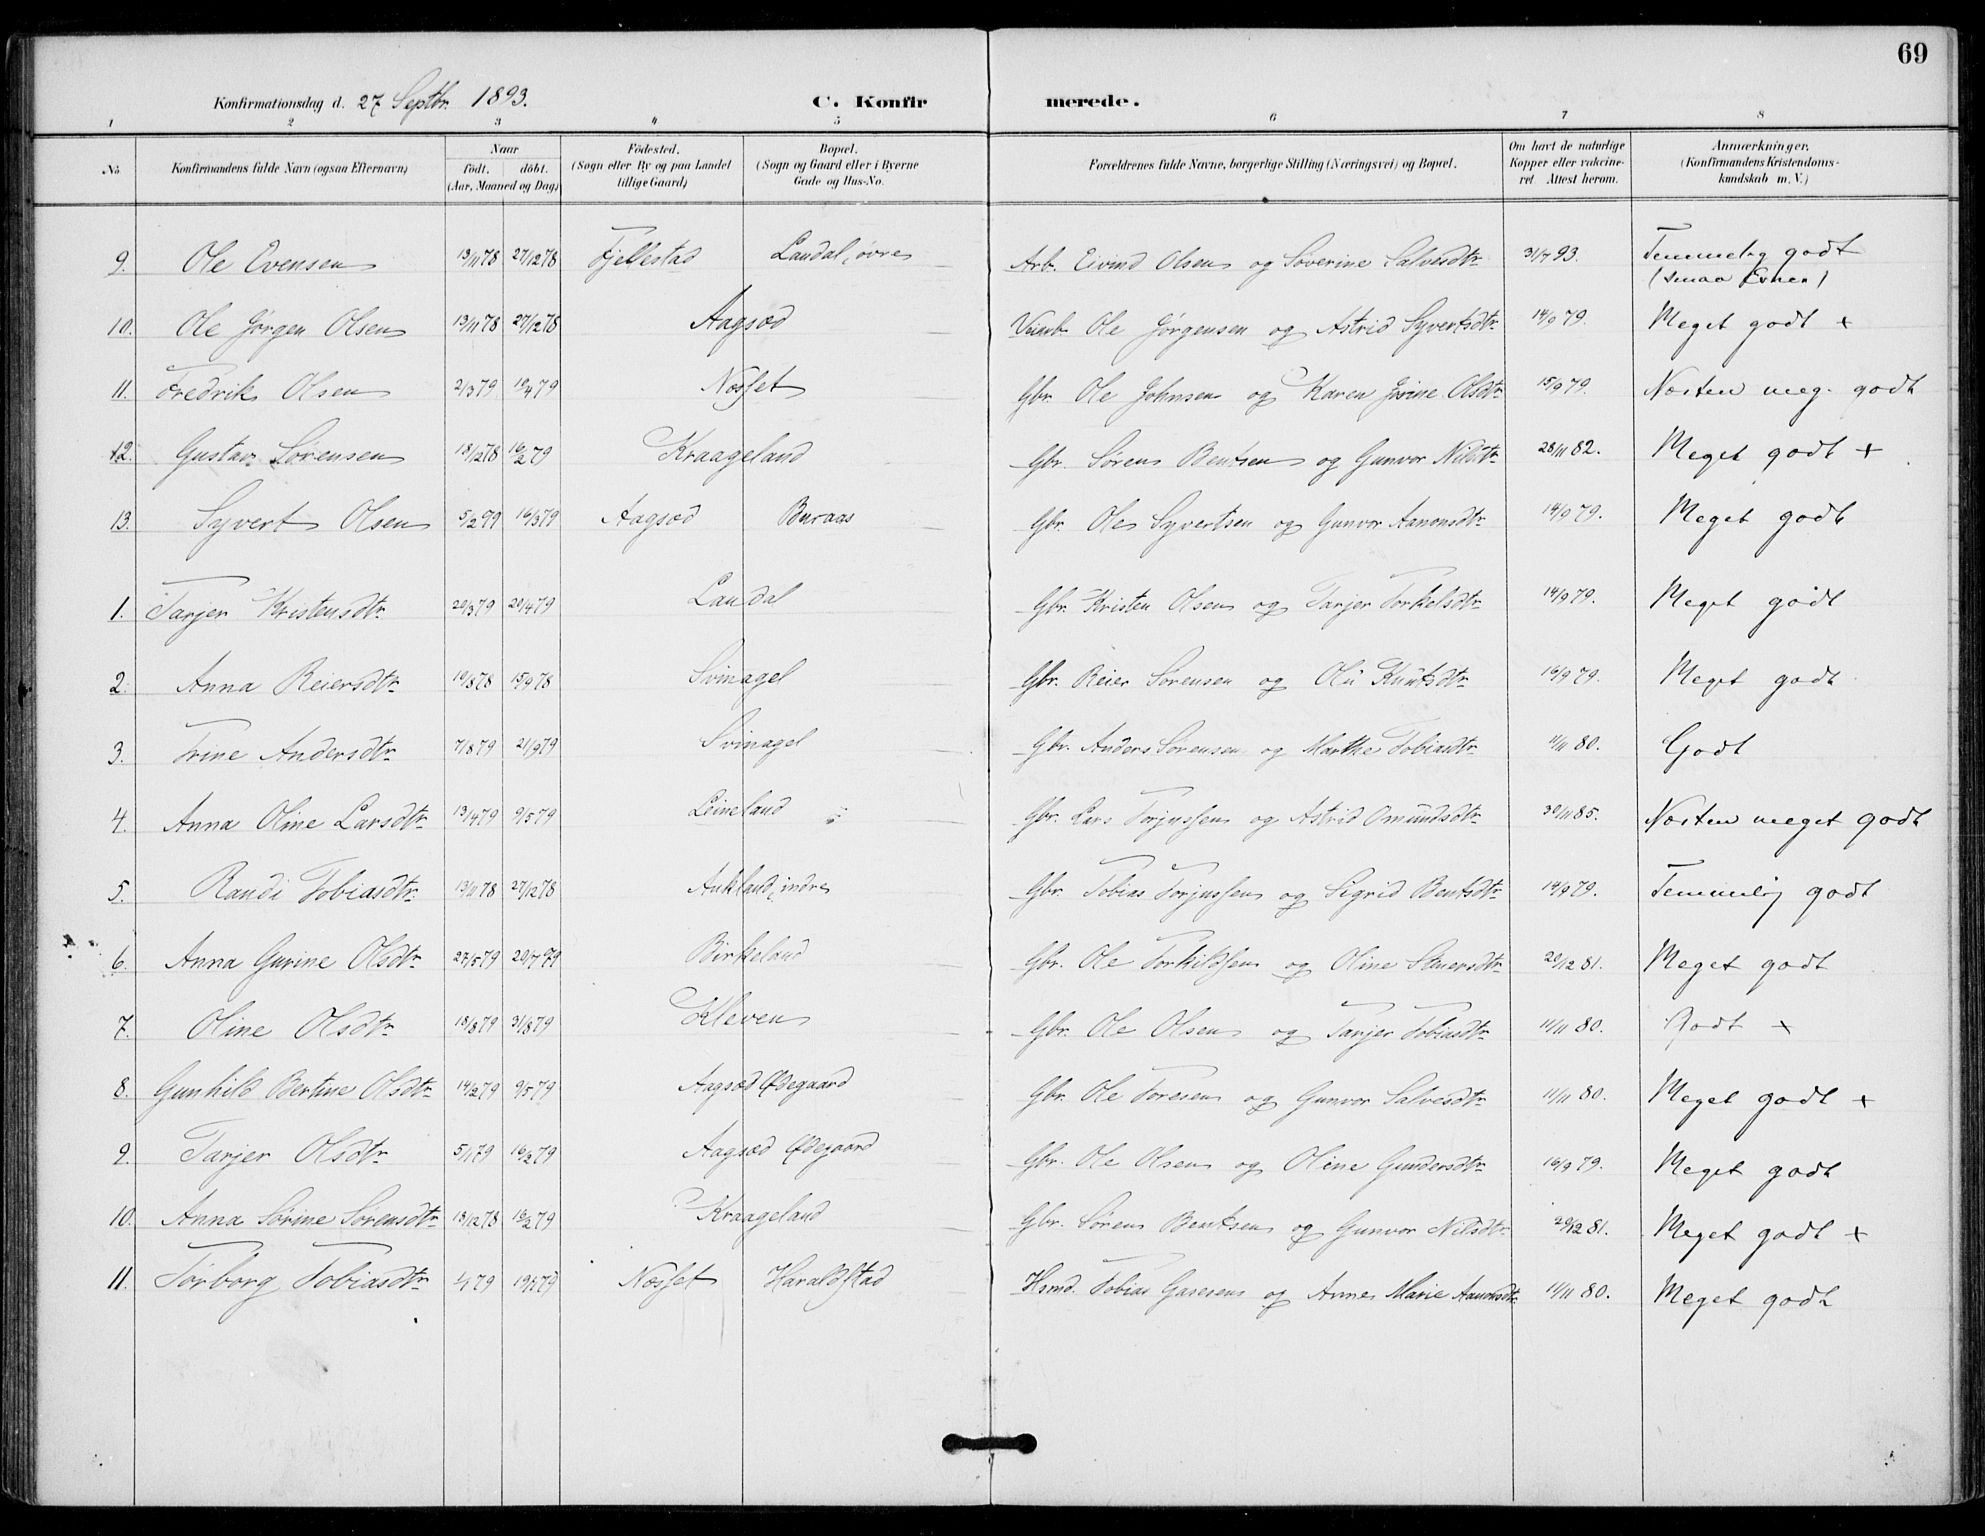 69
Konfirmationsdag d. 27 Septbr. 1893. C. Konfirmerede.
1 2 3 4 5 6 7 8
No. Konfirmandens fulde Navn (ogsaa Efternavn) Naar födt. döbt. (Aar, Maaned og Dag) Födested. (Sogn eller By og paa Landet tillige Gaard) Bopæl. (Sogn og Gaard eller i Byerne Gade og Hus-No. Forældrenes fulde Navne, borgerlige Stilling (Næringsvei) og Bopæl. Om havt de naturlige Kopper eller vakcineret Attest herom. Anmærkninger. (Konfirmandens Kristendomskundskab m. V.)
9. Ole Evensen 13/11 78 27/12 78 Fjellestad Landal, øvre Arb. Eivind Olsen og Søverine Salvesdtr 31/7 93. Temmelig godt
(smaa Evner)
10. Ole Jørgen Olsen 13/11 78 27/12 78 Aagsæd Ole Jørgensen og Astrid Syvertsdtr 14/9 79. Meget godt +
11. Fredrik Olsen 2/3 79 10/4 79 Næsset Gbr. Ole Johnsen og Karen Olsdtr 15/9 79. Næsten meg. godt
12. Gustav Sørensen 18/12 78 16/2 79 Kraageland Gbr. Søren Bentsen og Gunvor Nilsdtr 28/11 82. Meget godt +
13. Syvert Olsen 5/2 79 16/3 79 Aagsæd Buraas Gbr. Ole Syvertsen og Gunvor Aanonsdtr 14/9 79. Meget godt
1. Tarjer Kristensdtr 20/3 79 20/4 79 Landal Gbr. Kristen Olsen og Tarjer Torkelsdtr 14/9 79. Meget godt
2. Anna Reiersdtr 10/8 78 15/9 78 Svinagel Gbr. Reier Sørensen og Olü Knütsdtr 16/9 79. Meget godt
3. Trine Andersdtr 7/8 79 21/9 79 Svinagel Gbr. Anders Sørensen og Marthe Tobiasdtr 11/11 80. Godt
4. Anna Oline Larsdtr 13/4 79 9/5 79 Leineland Gbr. Lars Torjussen og Astrid Omündsdtr 30/11 85. Næsten meget godt
5. Randi Tobiasdtr 13/11 78 27/12 78 Aukland, indre Gbr. Tobias Torjussen og Sigrid Bentsdtr 14/9 79. Temmelig godt
6. Anna Gurine Olsdtr 27/5 79 20/7 79 Birkeland Gbr. Ole Torkildsen og Oline 20/12 81. Meget godt
7. Oline Olsdtr 18/8 79 31/8 79 Kleven Gbr. Ole Olsen og Tarjer Tobiasdtr 11/11 80. Godt +
8. Gunhild Bertine Olsdtr 14/2 79 9/5 79 Aagsæd Ødegaard Gbr. Ole Toresen og Gunvor Salvesdtr 11/11 80. Meget godt +
9. Tarjer Olsdtr 5/1 79 16/2 79 Aagsæd Ødegaard Gbr. Ole Olsen og Oline Gundersdtr 16/9 79. Meget godt
10. Anna Sørine Sørensdtr 18/12 78 16/2 79 Kraageland Gbr. Søren Bentsen og Gunvor Nilsdtr 20/12 81. Meget godt +
11. Torborg Tobiasdtr 79 79 Næsset Haraldstad Hsmd. Tobias og Anne Marie Aanonsdtr 11/11 80. Meget godt